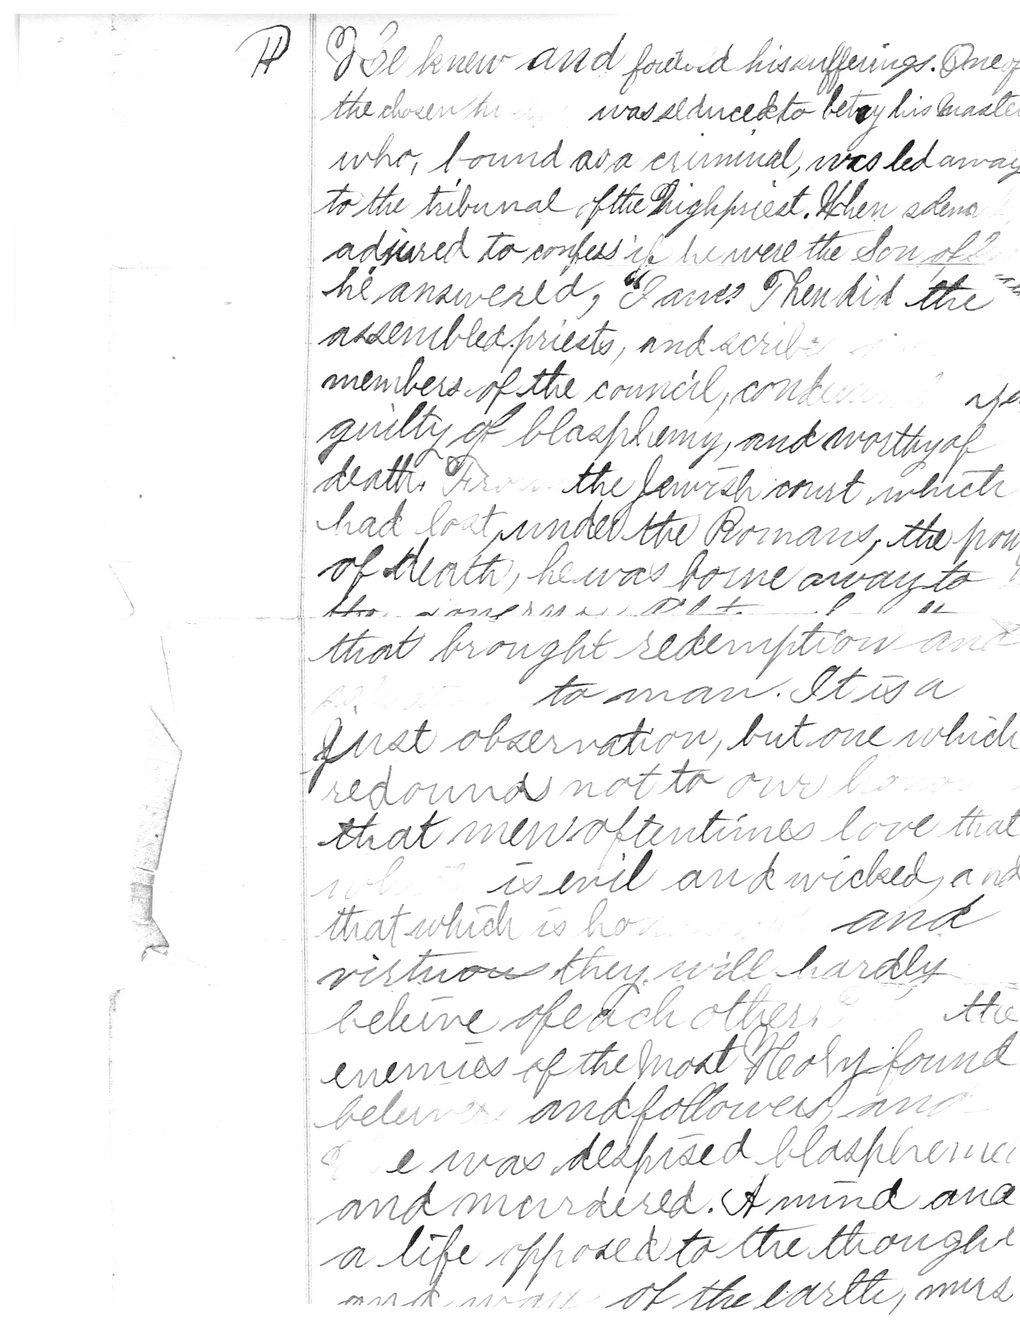 He knew and foretold his sufferings. One of
the chosen was seduced to betray his Master
who, bound as a criminal, was led away
to the tribunal of the high priest. When
adjured to confess if he were the Son of
he answered, "I am." Then did the
assembled priests, and scribe
members of the council,
guilty of blasphemy, and worthy of
death. From the Jewish court which
had lost, under the Romans, the pow
of death, he was borne away to
that brought redemption and
to man. It is a
just observation, but one which
redounds not to our honor
that men oftentimes love that
is evil and wicked, and
that which is and
virtuous they will hardly
beleive of each other. the
enemies of the Most Holy found
and followers, and
e was despised blasphemed
and murdered. A mind and
a life opposed to the thought
and ways of the earth, mus